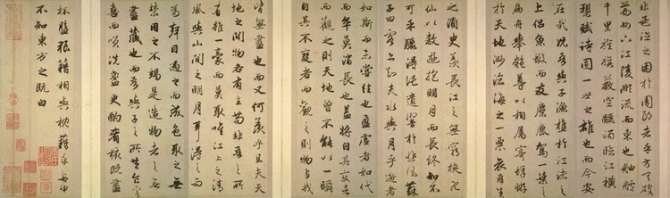 非孟德之困於周郎者乎方其破
荊州下江陵順流而東也舳艫
千里旌旗蔽空釃酒臨江橫
槊賦詩固一世之雄也而今安
在哉況吾與子漁樵於江渚之
上侶魚蝦而友麋鹿駕一葉之
扁舟舉匏尊以相屬寄蜉蝣
於天地渺滄海之一粟哀吾生
之須臾羨長江之無窮挾飛
仙以遨遊抱明月而長終知不
可乎驟得託遺響於悲風蘇
子曰客亦知夫水與月乎逝者
如斯而未嘗往也盈虛者如代
而卒莫消長也蓋將自其變者
而觀之則天地曾不能以一瞬
自其不變者而觀之則物與我
皆無盡也而又何羨乎且夫天
地之間物各有主苟非吾之所
有雖一毫而莫取惟江上之清
風與山間之明月耳得之而
為聲目遇之而成色取之無
禁用之不竭是造物者之無
盡藏也而吾與子之所共食客
喜而笑洗盞更酌肴核既盡
杯盤狼藉相與枕藉乎舟中
不知東方之既白